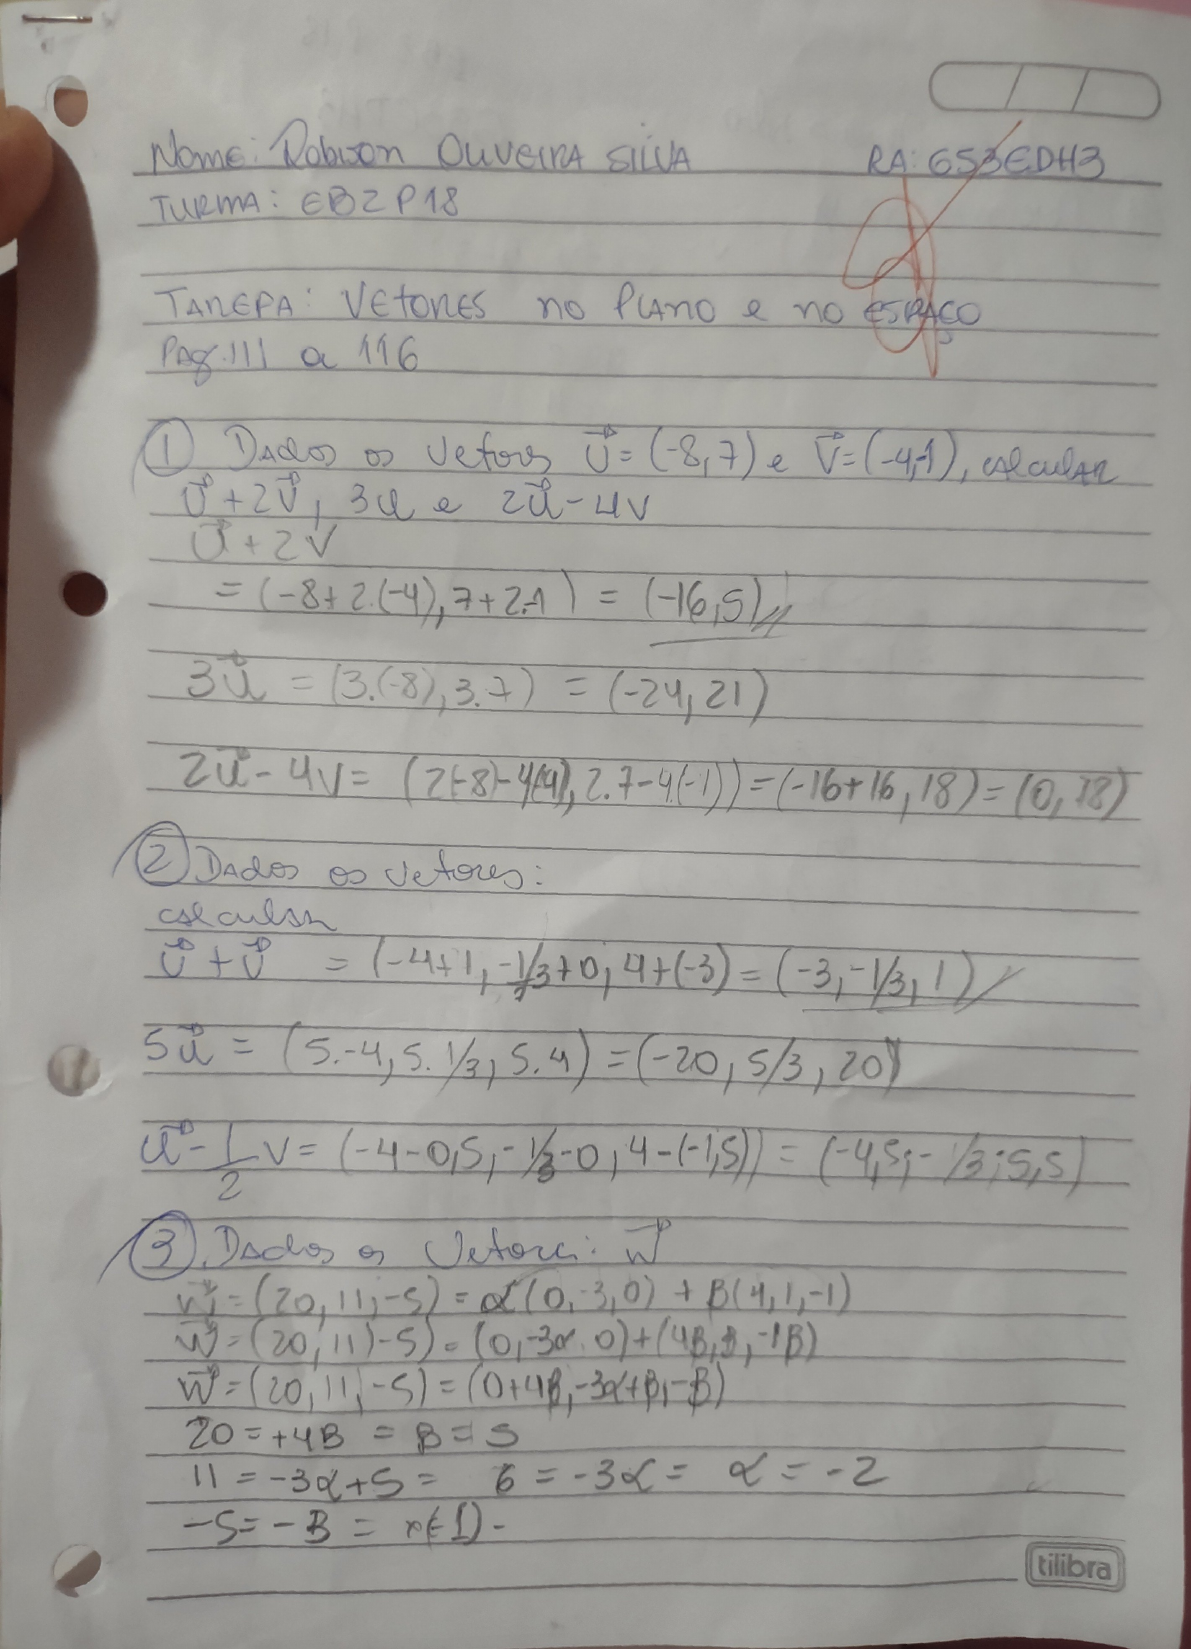 Nome: Robison Oliveira Silva RA: G53EDH3
TURMA: EB2P18
TAREFA: VETORES no PLANO e no ESPAÇO
PAg. 111 a 116
1 Dados os vetores U = (-8,7) e V = (-4,-1), calcular
U + 2V, 3u e 2u - 4v
U + 2V
= (-8+2.(-4), 7+2.-1) = (-16,5)
3u = (3.(-8), 3.7) = (-24, 21)
2u - 4v = (2(-8)-4(-4), 2.7-4.(-1)) = (-16+16, 18) = (0, 18)
2 Dados os vetores:
calcular
U + V = (-4+1, -1/3+0, 4+(-3) = (-3, -1/3, 1)
5u = (5.-4, 5.1/3, 5.4) = (-20, 5/3, 20)
u - 1/2 v = (-4-0,5, -1/3-0, 4-(-1,5)) = (-4,5; -1/3; 5,5)
3 Dados os Vetores: W
W = (20, 11, -5) = α(0, -3, 0) + B(4, 1, -1)
W = (20, 11, -5) = (0, -3α, 0) + (4B, B, -1B)
W = (20, 11, -5) = (0+4B, -3α+B, -B)
20 = +4B = B = 5
11 = -3α+5 = 6 = -3α = α = -2
-5 = -B = x(-1) -
tilibra